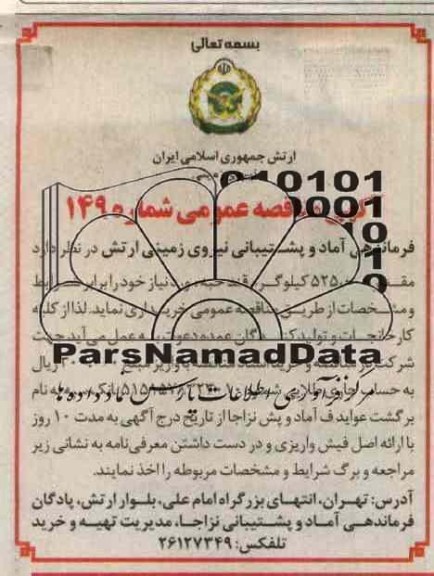 بسمه تعالی
ارتش جمهوری اسلامی ایران
010101
0001
مناقصه عمومی شماره ۱۴۹
10
فرماندهی آماد و پشتیبانی نیروی زمینی ارتش در نظر دارد
1
۵۲۵ کیلوگرم قند حبه مورد نیاز خود را برابر شرایط
0
و مشخصات از طریق مناقصه عمومی خریداری نماید. لذا از کلیه
کارخانجات و تولیدکنندگان عمده دعوت به عمل می آید جهت
ParsNamadData
شرکت در مناقصه و خرید اسناد مناقصه با واریز مبلغ ریال
به حساب جاری بانک سپه به نام
مرکز فرآوری اطلاعات پارس نماد داده ها
برگشت عواید ف آماد و پش نزاجا از تاریخ درج آگهی به مدت ۱۰ روز
با ارائه اصل فیش واریزی و در دست داشتن معرفی نامه به نشانی زیر
مراجعه و برگ شرایط و مشخصات مربوطه را اخذ نمایند.
آدرس: تهران، انتهای بزرگراه امام علی، بلوار ارتش، پادگان
فرماندهی آماد و پشتیبانی نزاجا، مدیریت تهیه و خرید
تلفکس: ۲۶۱۲۷۳۴۹